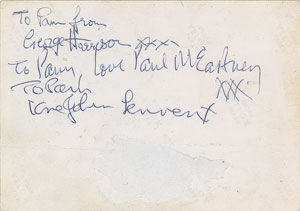 To Pam from
George Harrison xxxx
To Pam, love Paul McCartney
xxx
To Pam
love John Lennon x